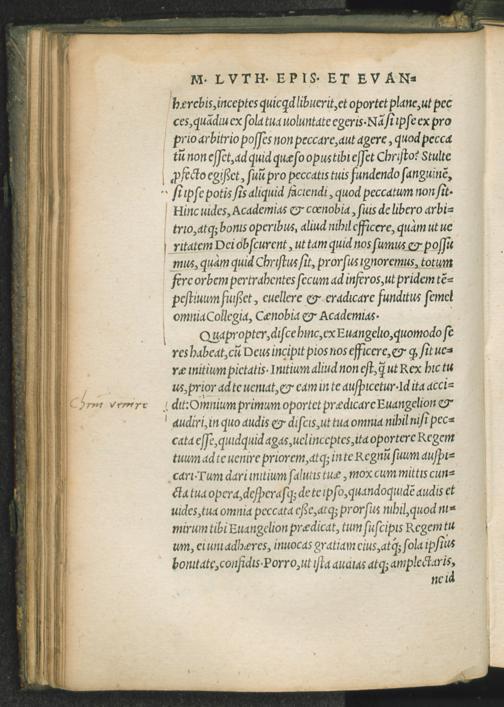 M. LVTH. EPIS. ET EVAN=
hærebis, inceptes quicqd libuerit, et oportet plane, ut pec
ces, quādiu ex sola tua uoluntate egeris. Nā si ipse ex pro
prio arbitrio posses non peccare, aut agere, quod pecca
tū non esset, ad quid quæso opus tibi esset Christo? Stulte
ꝓfecto egisset, suū pro peccatis tuis fundendo sanguinē,
si ipse potis sis aliquid faciendi, quod peccatum non sit.
Hinc uides, Academias & cœnobia, suis de libero arbi=
trio, atq; bonis operibus, aliud nihil efficere, quàm ut ue
ritatem Dei obscurent, ut tam quid nos sumus & possu
mus, quàm quid Christus sit, prorsus ignoremus, totum
fere orbem pertrahentes secum ad inferos, ut pridem tē=
pestiuum fuisset, euellere & eradicare funditus semel
omnia Collegia, Cœnobia & Academias.
Quapropter, disce hinc, ex Euangelio, quomodo se
res habeat, cū Deus incipit pios nos efficere, & q̄, sit ue=
ræ initium pietatis. Initium aliud non est, q̄ ut Rex hic tu
us, prior ad te ueniat, & eam in te auspicetur. Id ita acci=
Chrm venire
dit: Omnium primum oportet prædicare Euangelion &
audiri, in quo audis & discis, ut tua omnia nihil nisi pec=
cata esse, quidquid agas, uel inceptes, ita oportere Regem
tuum ad te venire priorem, atq; in te Regnū suum auspi=
cari. Tum dari initium salutis tuæ, mox cum mittis cun=
cta tua opera, desperasq; de te ipso, quandoquidē audis et
uides, tua omnia peccata esse, atq; prorsus nihil, quod ni=
mirum tibi Euangelion prædicat, tum suscipis Regem tu
um, ei uni adhæres, inuocas gratiam eius, atq; sola ipsius
bonitate, confidis. Porro, ut ista audias atq; amplectaris,
ne id